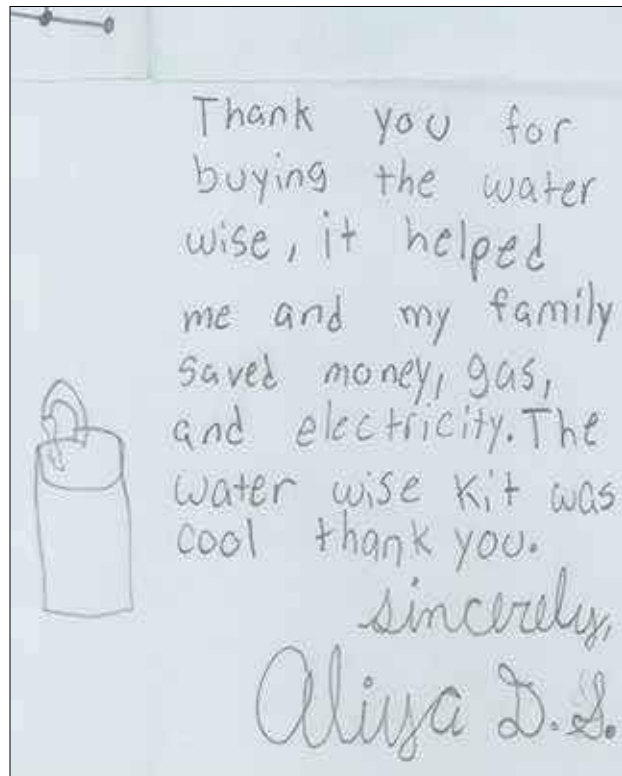 Thank you for
buying the water
wise, it helped
me and my family
saved money, gas,
and electricity. The
water wise kit was
cool thank you.
sincerely,
Aliya D. S.